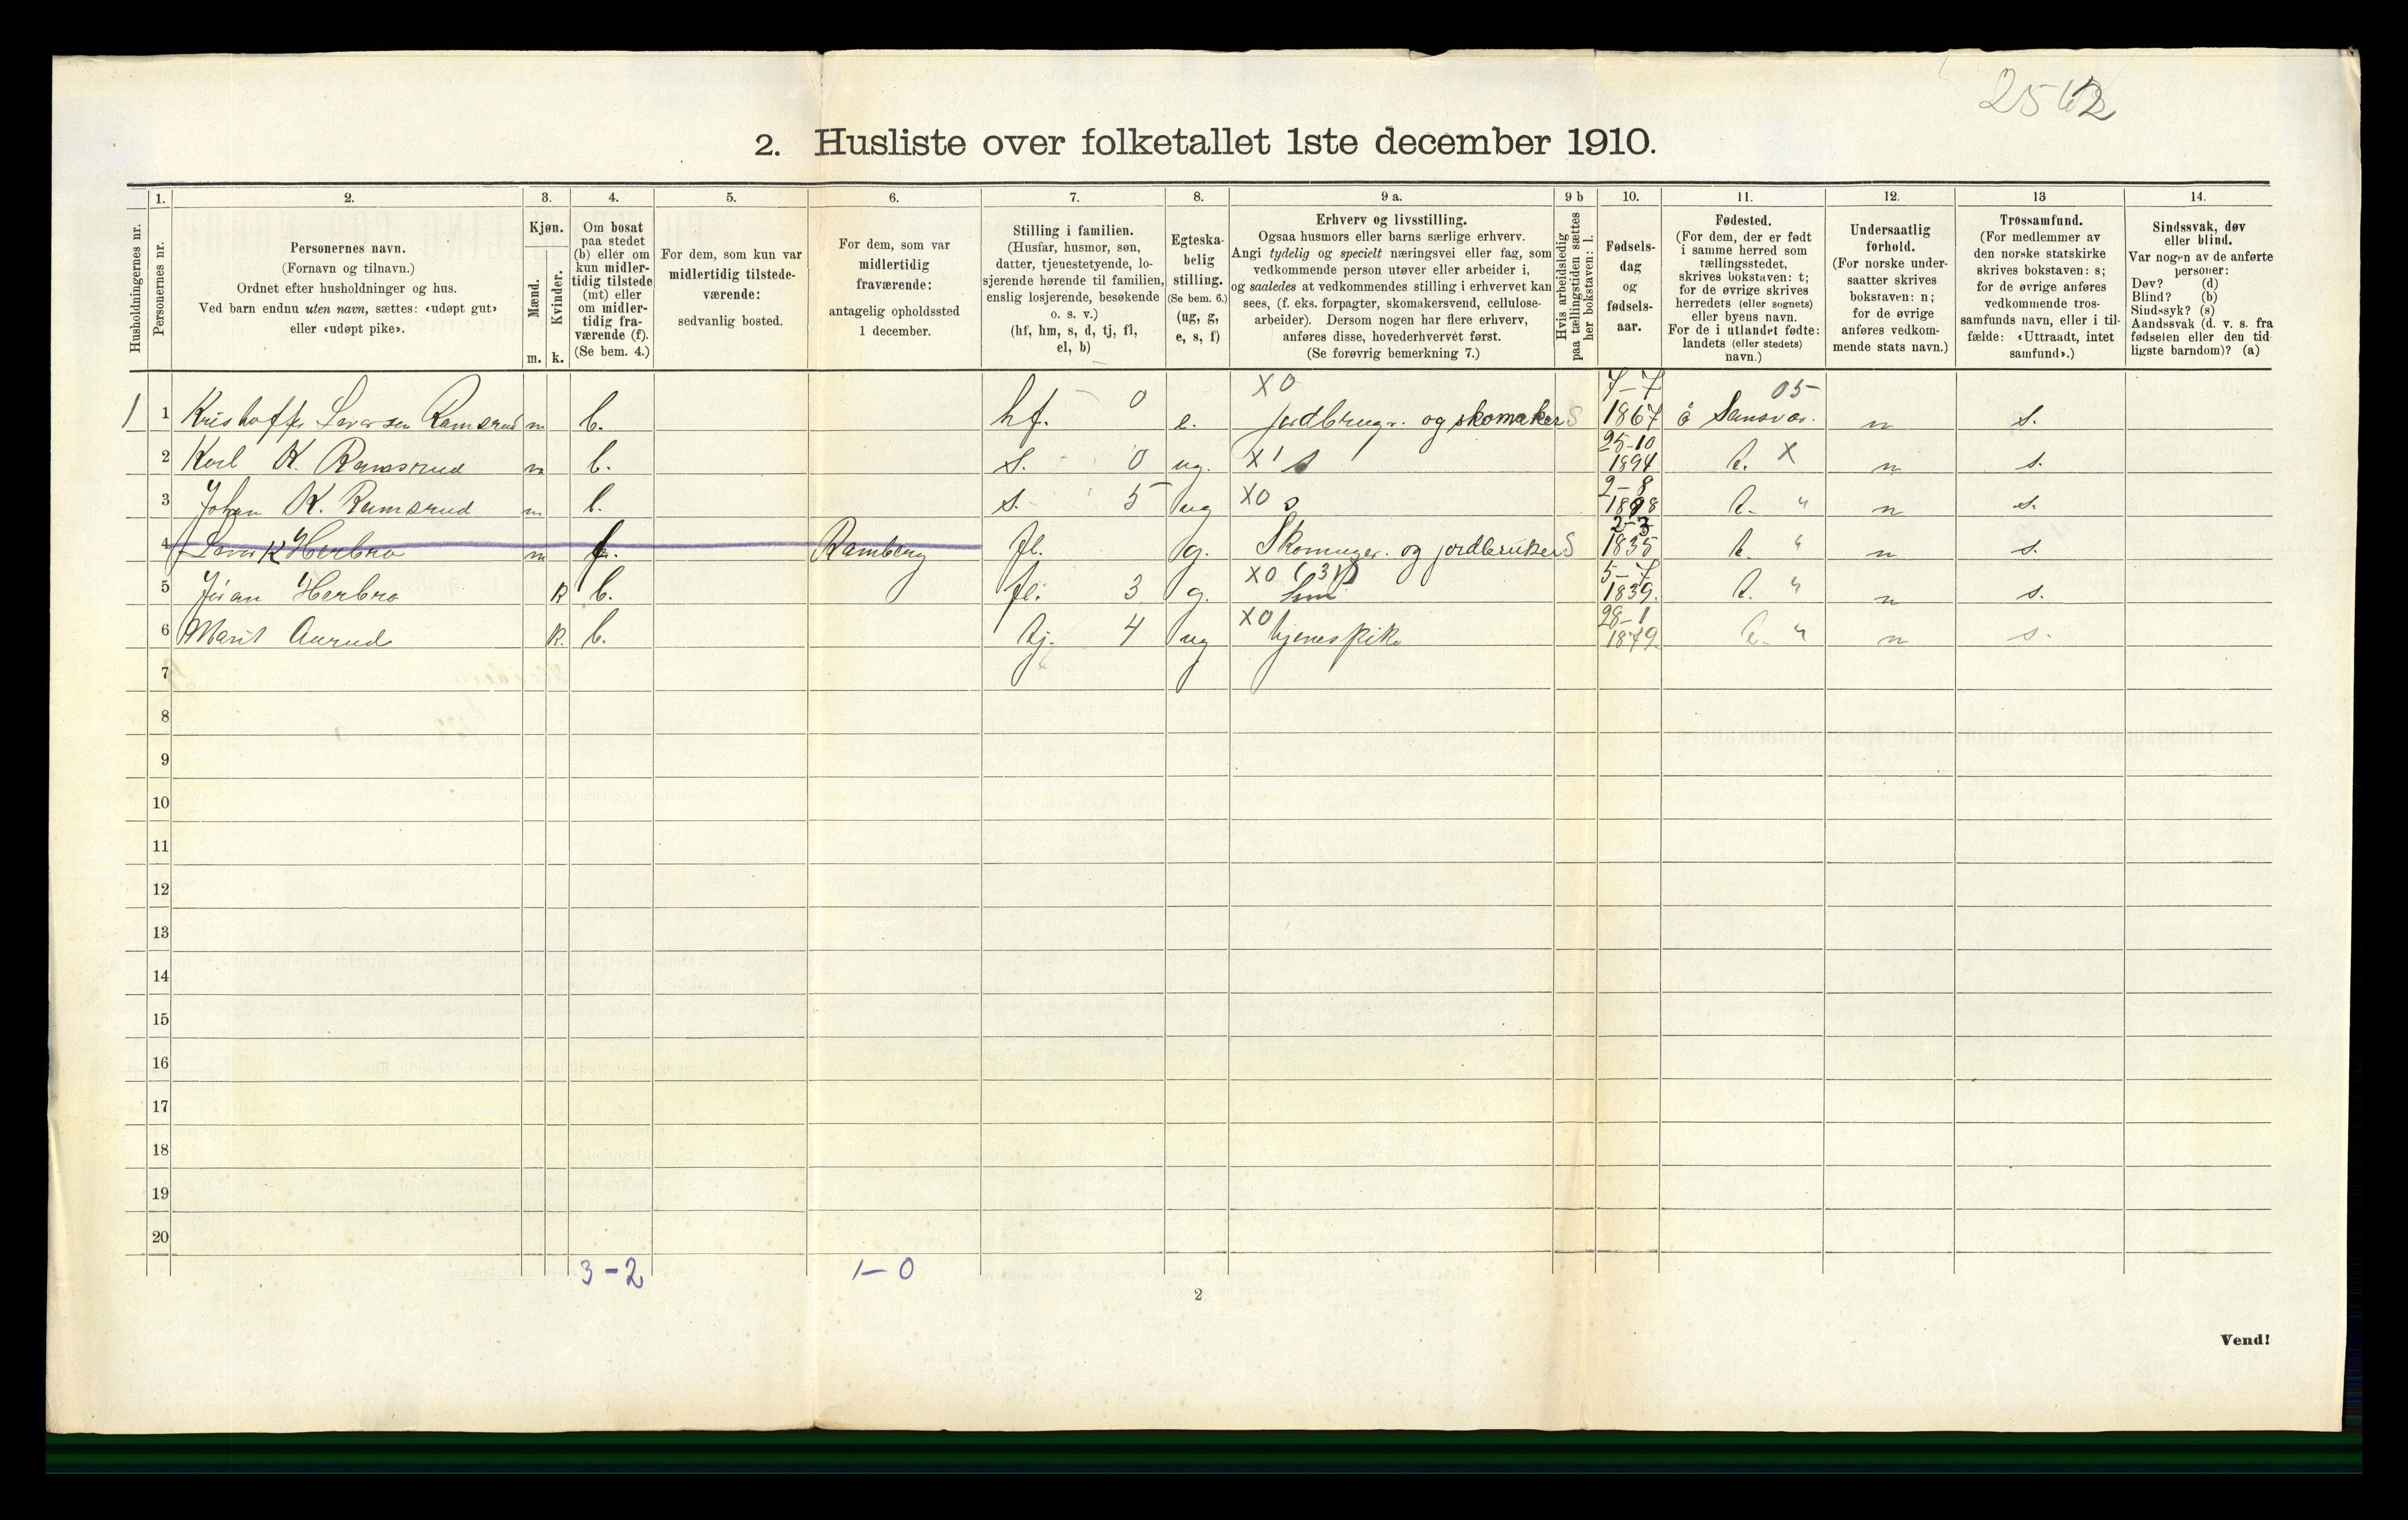 2. Husliste over folketallet 1ste december 1910.
Husholdningernes nr.
1. Personernes nr.
2. Personernes navn.
(Fornavn og tilnavn.)
Ordnet efter husholdninger og hus.
Ved barn endnu uten navn, sættes: «udøpt gut»
eller «udøpt pike».
3. Kjøn.
Mænd. m.
Kvinder. k.
4. Om bosat
paa stedet
(b) eller om
kun midler-
tidig tilstede
(mt) eller
om midler-
tidig fra-
værende (f).
(Se bem. 4.)
5. For dem, som kun var
midlertidig tilstede-
værende:
sedvanlig bosted.
6. For dem, som var
midlertidig
fraværende:
antagelig opholdssted
1 december.
7. Stilling i familien.
(Husfar, husmor, søn,
datter, tjenestetyende, lo-
sjerende hørende til familien,
enslig losjerende, besøkende
o. s. v.)
(hf, hm, s, d, tj, fl,
el, b)
8. Egteska-
belig
stilling.
(Se bem. 6.)
(ug, g,
e, s, f)
9 a. Erhverv og livsstilling.
Ogsaa husmors eller barns særlige erhverv.
Angi tydelig og specielt næringsvei eller fag, som
vedkommende person utøver eller arbeider i,
og saaledes at vedkommendes stilling i erhvervet kan
sees, (f. eks. forpagter, skomakersvend, cellulose-
arbeider). Dersom nogen har flere erhverv,
anføres disse, hovederhvervet først.
(Se forøvrig bemerkning 7.)
9 b Hvis arbeidsledig
paa tællingstiden sættes
her bokstaven: l.
10. Fødsels-
dag
og
fødsels-
aar.
11. Fødested.
(For dem, der er født
i samme herred som
tællingsstedet,
skrives bokstaven: t;
for de øvrige skrives
herredets (eller sognets)
eller byens navn.
For de i utlandet fødte:
landets (eller stedets)
navn.)
12. Undersaatlig
forhold.
(For norske under-
saatter skrives
bokstaven: n;
for de øvrige
anføres vedkom-
mende stats navn.)
13 Trossamfund.
(For medlemmer av
den norske statskirke
skrives bokstaven: s;
for de øvrige anføres
vedkommende tros-
samfunds navn, eller i til-
fælde: «Uttraadt, intet
samfund».)
14. Sindssvak, døv
eller blind.
Var nogen av de anførte
personer:
Døv? (d)
Blind? (b)
Sindssyk? (s)
Aandssvak (d. v. s. fra
fødselen eller den tid-
ligste barndom)? (a)
1 1 Ramsrud m b. hf. 0 e. XO og skomaker S 7-7 1867 05 n s.
2 Karl K. Ramsrud m b. s. 0 ug. X 1 s 25-10 1894 t. X n s.
3 Johan K. Ramsrud m b. s. 5 ug XO s 2-8 1898 t. " n s.
4 K Herbro m f. Ramberg fl. g. og jordbruker S 2-3 1835 t. " n s.
5 Herbro k b. fl. 3 g. XO (31) 5-7 1839. t. " n s.
6 Marit Aurud k. b. tj. 4 ug XO tjenespike 28-1 1879. t. " n s.
7
8
9
10
11
12
13
14
15
16
17
18
19
20
3-2 1-0
2
Vend!